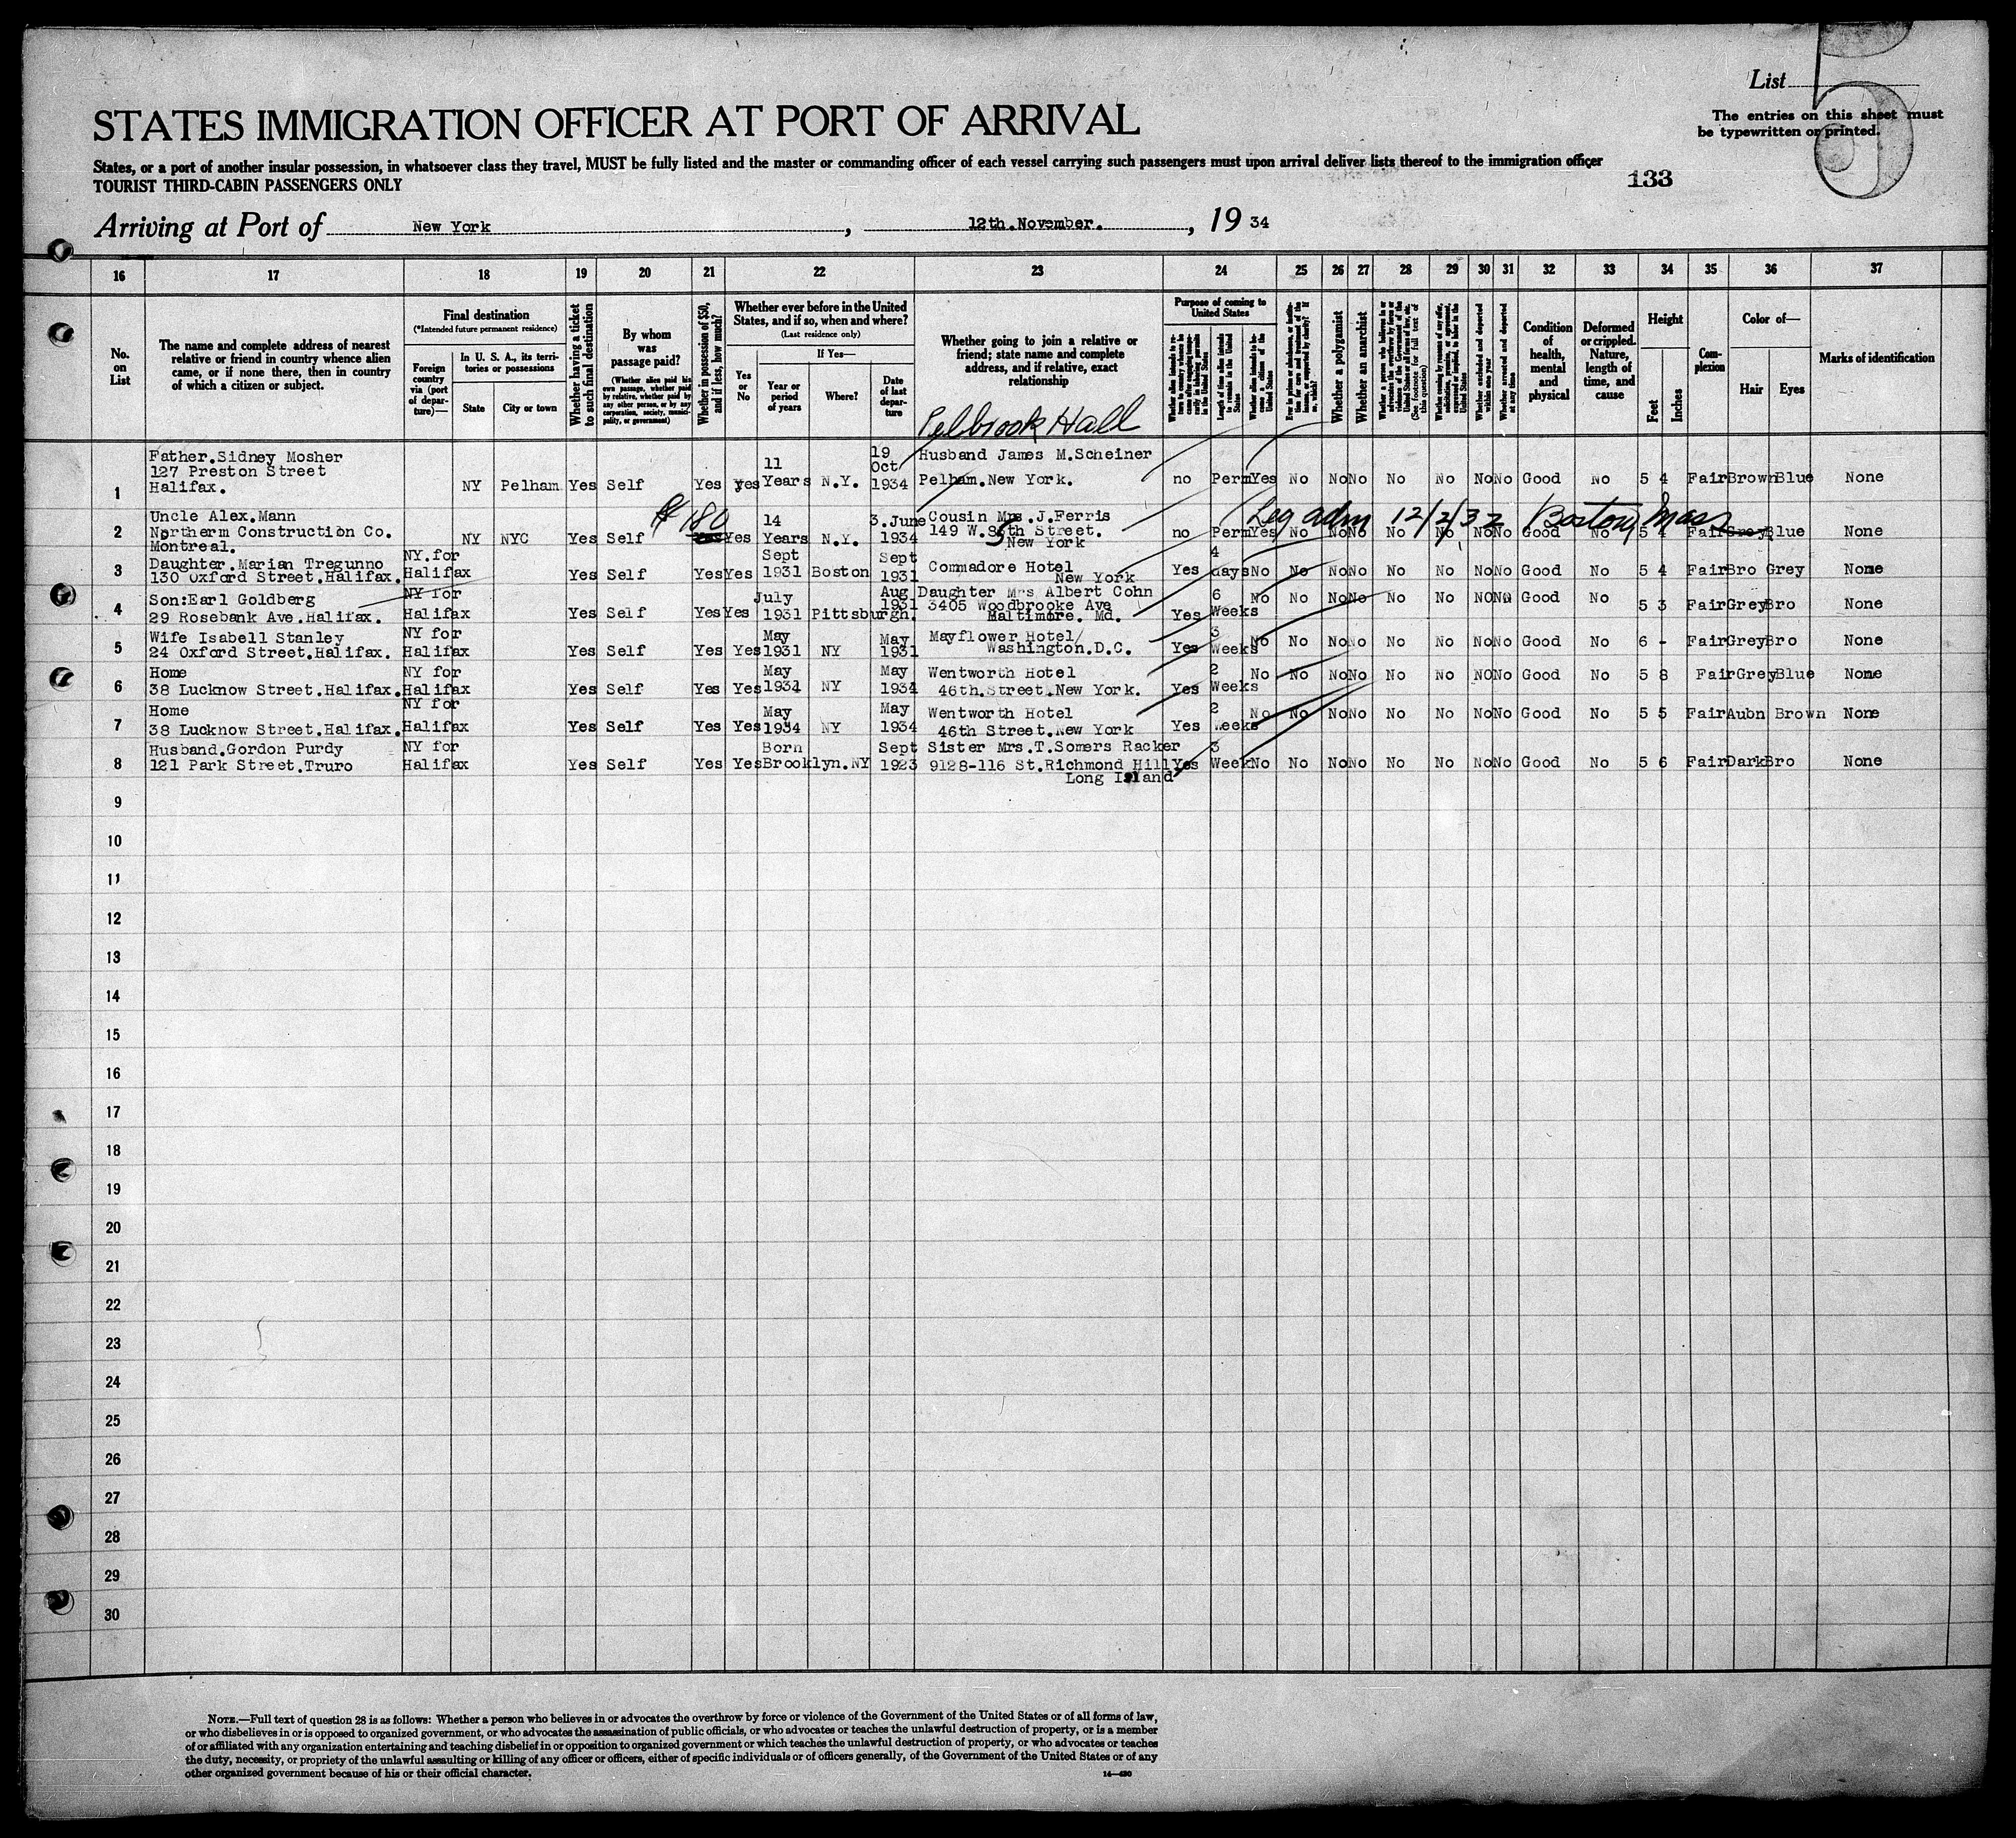 List
5
The entries on this sheet must
be typewritten or printed.
STATES IMMIGRATION OFFICER AT PORT OF ARRIVAL
States, or a port of another insular possession, in whatsoever class they travel, MUST be fully listed and the master or commanding officer of each vessel carrying such passengers must upon arrival deliver lists thereof to the immigration officer
TOURIST THIRD-CABIN PASSENGERS ONLY
133
Arriving at Port of New York, 12th.November., 19 34
16 17 18 19 20 21 22 23 24 25 26 27 28 29 30 31 32 33 34 35 36 37
No. on List
The name and complete address of nearest
relative or friend in country whence alien
came, or if none there, then in country
of which a citizen or subject.
Final destination
(*Intended future permanent residence)
Foreign country via (port of departure)—
In U. S. A., its territories or possessions
State
City or town
Whether having a ticket to such final destination
By whom was passage paid?
(Whether alien paid his own passage, whether paid by relative, whether paid by any other person, or by any corporation, society, municipality, or government)
Whether in possession of $50, and if less, how much?
Whether ever before in the United
States, and if so, when and where?
(Last residence only)
Yes or No
If Yes—
Year or period of years
Where?
Date of last departure
Whether going to join a relative or
friend; state name and complete
address, and if relative, exact
relationship
Purpose of coming to United States
Whether a polygamist
Whether an anarchist
Condition of health, mental and physical
Deformed or crippled. Nature, length of time, and cause
Height
Feet
Inches
Complexion
Color of—
Hair
Eyes
Marks of identification
Pelbrook Hall
1 Father.Sidney Mosher
127 Preston Street
Halifax.
NY Pelham Yes Self Yes yes 11 Years N.Y. 19 Oct 1934
Husband James M.Scheiner
Pelham.New York.
no Perm Yes No No No No No No No Good No 5 4 Fair Brown Blue None
$180
Leg adm 12/2/32 Boston, Mass
2 Uncle Alex.Mann
Northerm Construction Co.
Montreal.
NY NYC Yes Self Yes 14 Years N.Y. 3.June 1934
Cousin Mrs.J.Ferris
149 W. 5th Street.
New York
no Perm Yes No No No No No No No Good No 5 4 Fair Grey Blue None
3 Daughter.Marian Tregunno
130 Oxford Street.Halifax.
NY.for Halifax Yes Self Yes Yes Sept 1931 Boston Sept 1931
Commadore Hotel
New York
Yes 4 days No No No No No No No No Good No 5 4 Fair Bro Grey None
4 Son:Earl Goldberg
29 Rosebank Ave.Halifax.
NY for Halifax Yes Self Yes Yes July 1931 Pittsburgh. Aug 1931
Daughter Mrs Albert Cohn
3405 Woodbrooke Ave
Baltimore. Md.
Yes 6 Weeks No No No No No No No No Good No 5 3 Fair Grey Bro None
5 Wife Isabell Stanley
24 Oxford Street.Halifax.
NY for Halifax Yes Self Yes Yes May 1931 NY May 1931
Mayflower Hotel/
Washington.D.C.
Yes 3 Weeks No No No No No No No No Good No 6 - Fair Grey Bro None
6 Home
38 Lucknow Street.Halifax.
NY for Halifax Yes Self Yes Yes May 1934 NY May 1934
Wentworth Hotel
46th.Street.New York.
Yes 2 Weeks No No No No No No No No Good No 5 8 Fair Grey Blue None
7 Home
38 Lucknow Street.Halifax.
NY for Halifax Yes Self Yes Yes May 1934 NY May 1934
Wentworth Hotel
46th Street.New York
Yes 2 Weeks No No No No No No No No Good No 5 5 Fair Aubn Brown None
8 Husband.Gordon Purdy
121 Park Street.Truro
NY for Halifax Yes Self Yes Yes Born Brooklyn.NY Sept 1923
Sister Mrs.T.Somers Racker
9128-116 St.Richmond Hill
Long Island
Yes 3 Week No No No No No No No No Good No 5 6 Fair Dark Bro None
9
10
11
12
13
14
15
16
17
18
19
20
21
22
23
24
25
26
27
28
29
30
NOTE.—Full text of question 28 is as follows: Whether a person who believes in or advocates the overthrow by force or violence of the Government of the United States or of all forms of law,
or who disbelieves in or is opposed to organized government, or who advocates the assassination of public officials, or who advocates or teaches the unlawful destruction of property, or is a member
of or affiliated with any organization entertaining and teaching disbelief in or opposition to organized government or which teaches the unlawful destruction of property, or who advocates or teaches
the duty, necessity, or propriety of the unlawful assaulting or killing of any officer or officers, either of specific individuals or of officers generally, of the Government of the United States or of any
other organized government because of his or their official character.
14—430